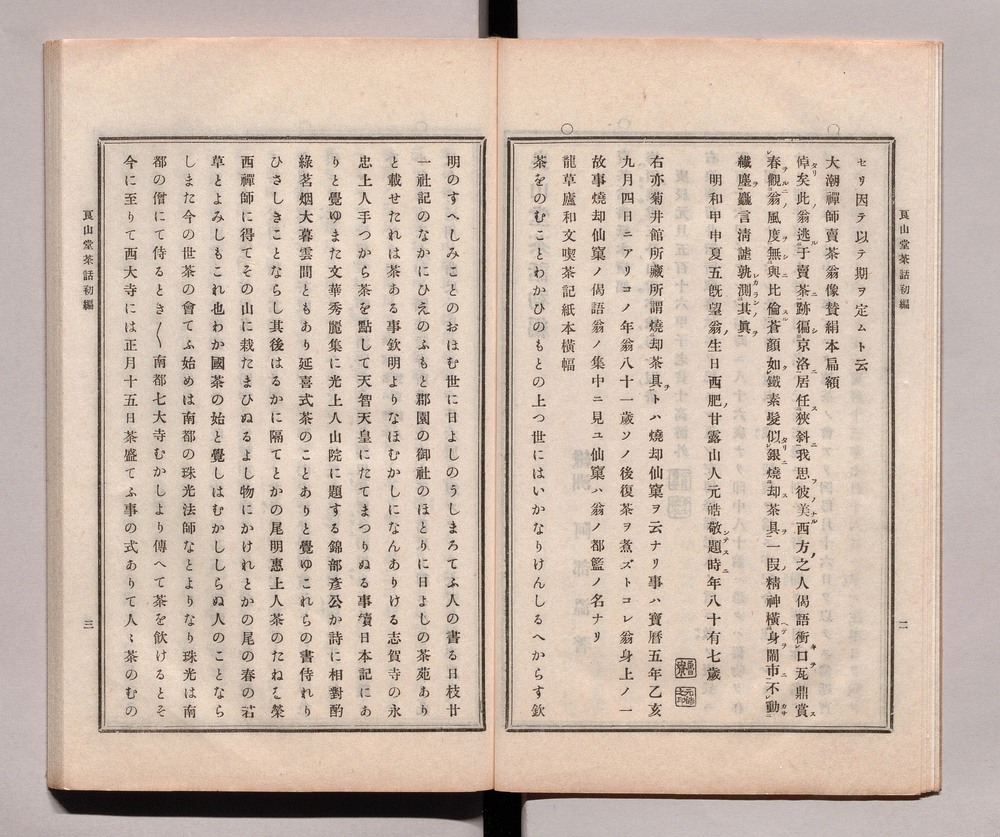 良山堂茶話初編
二
セリ因テ以テ期ヲ定ムト云
○
大潮禪師賣茶翁像贊絹本扁額
倬矣此翁逃于賣茶跡徧京洛居任狹斜我思彼美西方之人偈語衝口瓦鼎賞
春觀翁風度無與比倫蒼顏如鐵素髮似銀燒却茶具一段精神橫身鬧市不動
纖塵麤言淸謔孰測其眞
明和甲申夏五旣望翁生日西肥甘露山人元皓敬題時年八十有七歲
右亦菊井館所藏所謂燒却茶具トハ燒却仙窠ヲ云ナリ事ハ寶曆五年乙亥
九月四日ニアリコノ年翁八十一歲ソノ後復茶ヲ煮ズトコレ翁身上ノ一
故事燒却仙窠ノ偈語翁ノ集中ニ見ユ仙窠ハ翁ノ都籃ノ名ナリ
○
龍草廬和文喫茶記紙本橫幅
茶をのむことわかひのもとの上つ世にはいかなりけんしるへからす欽
明のすへしみことのおほむ世に日よしのうしまろてふ人の書る日枝廿
一社記のなかにひえのふもと郡園の御社のほとりに日よしの茶苑あり
と載せたれは茶ある事欽明よりなほむかしになんありける志賀寺の永
忠上人手つから茶を點して天智天皇にたてまつりぬる事實日本記にあ
りと覺ゆまた文華秀麗集に光上人山院に題する錦部彥公か詩に相對酌
綠茗烟火暮雲間ともあり延喜式茶のことありと覺ゆこれらの書侍れり
ひさしきことならし其後はるかに隔てとかの尾明惠上人茶のたねを榮
西禪師に得てその山に栽たまひぬるよし物にかけれとかの尾の春の若
草とよみしもこれ也わか國茶の始と覺しはむかししらぬ人のことなら
しまた今の世茶の會てふ始めは南都の珠光法師なとよりなり珠光は南
都の僧にて侍るとき〱南都七大寺むかしより傳へて茶を飮けるとそ
今に至りて西大寺には正月十五日茶盛てふ事の式ありて人〻茶のむの
良山堂茶話初編
三